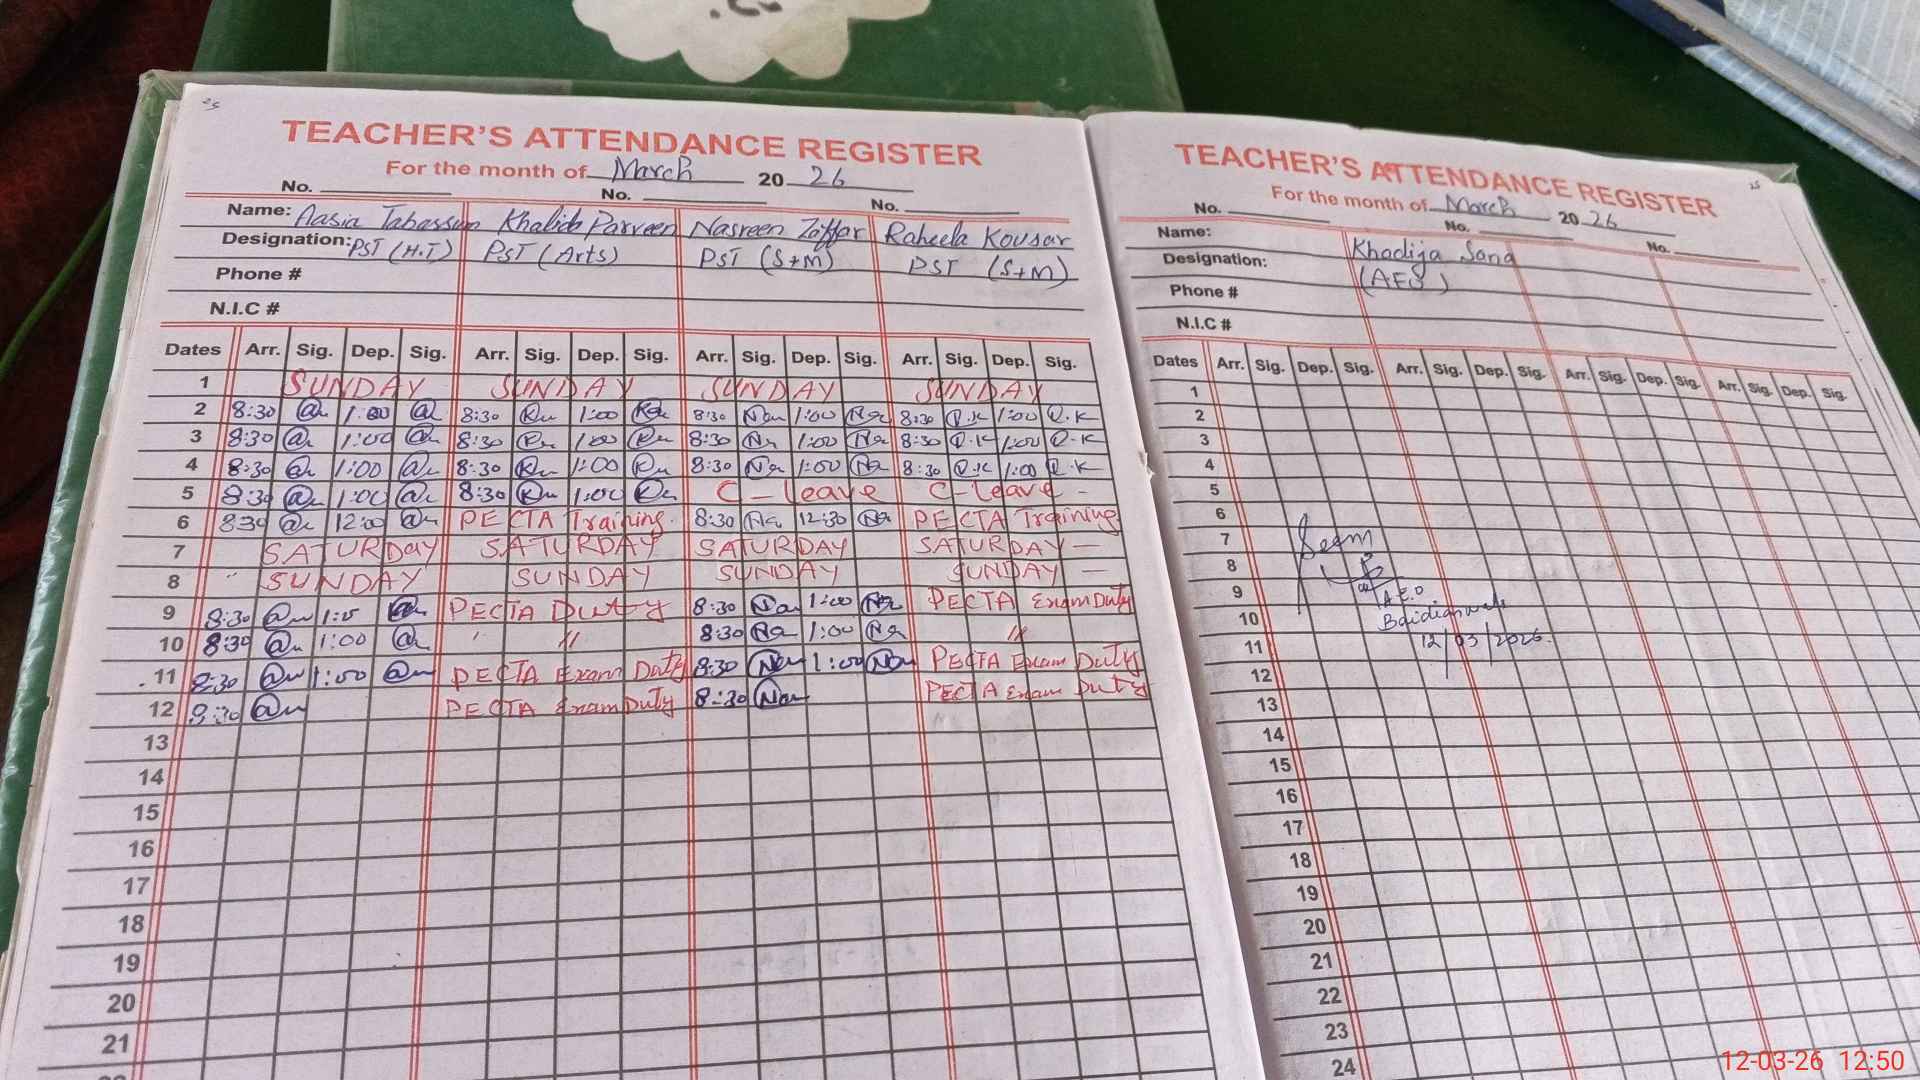 25
TEACHER'S ATTENDANCE REGISTER
For the month of March 20 26
No. No. No.
Name: Aasia Tabassum Khalida Parveen Nasreen Zaffar Raheela Kousar
Designation: PST (H.T) PST (Arts) PST (S+M) PST (S+M)
Phone #
N.I.C #
Dates Arr. Sig. Dep. Sig. Arr. Sig. Dep. Sig. Arr. Sig. Dep. Sig. Arr. Sig. Dep. Sig.
1 SUNDAY SUNDAY SUNDAY SUNDAY
2 8:30 1:00 8:30 1:00 8:30 1:00 8:30 R.K 1:00 R.K
3 8:30 1:00 8:30 1:00 8:30 1:00 8:30 R.K 1:00 R.K
4 8:30 1:00 8:30 1:00 8:30 1:00 8:30 R.K 1:00 R.K
5 8:30 1:00 8:30 1:00 C-Leave C-Leave -
6 8:30 12:00 PECTA Training. 8:30 12:30 PECTA Training
7 SATURDAY SATURDAY SATURDAY SATURDAY —
8 SUNDAY SUNDAY SUNDAY SUNDAY —
9 8:30 PECTA Duty 8:30 1:00 PECTA Exam Duty
10 8:30 1:00 " 8:30 1:00 "
11 8:30 1:00 PECTA Exam Duty 8:30 1:00 PECTA Exam Duty
12 8:30 PECTA Exam Duty 8:30 PECTA Exam Duty
13
14
15
16
17
18
19
20
21
25
TEACHER'S ATTENDANCE REGISTER
For the month of March 20 26
No. No. No.
Name: Khadija Sana
Designation: (AEO)
Phone #
N.I.C #
Dates Arr. Sig. Dep. Sig. Arr. Sig. Dep. Sig. Arr. Sig. Dep. Sig. Arr. Sig. Dep. Sig.
1
2
3
4
5
6
7 Seen
8
9 A.E.O
10
11 12/03/2026.
12
13
14
15
16
17
18
19
20
21
22
23
24
12-03-26 12:50